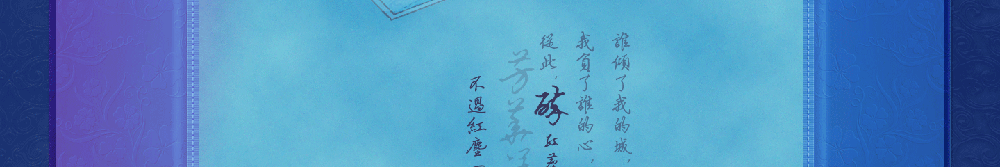 誰傾了我的城，
我負了誰的心，
從此，醉紅
芳華
不過紅塵